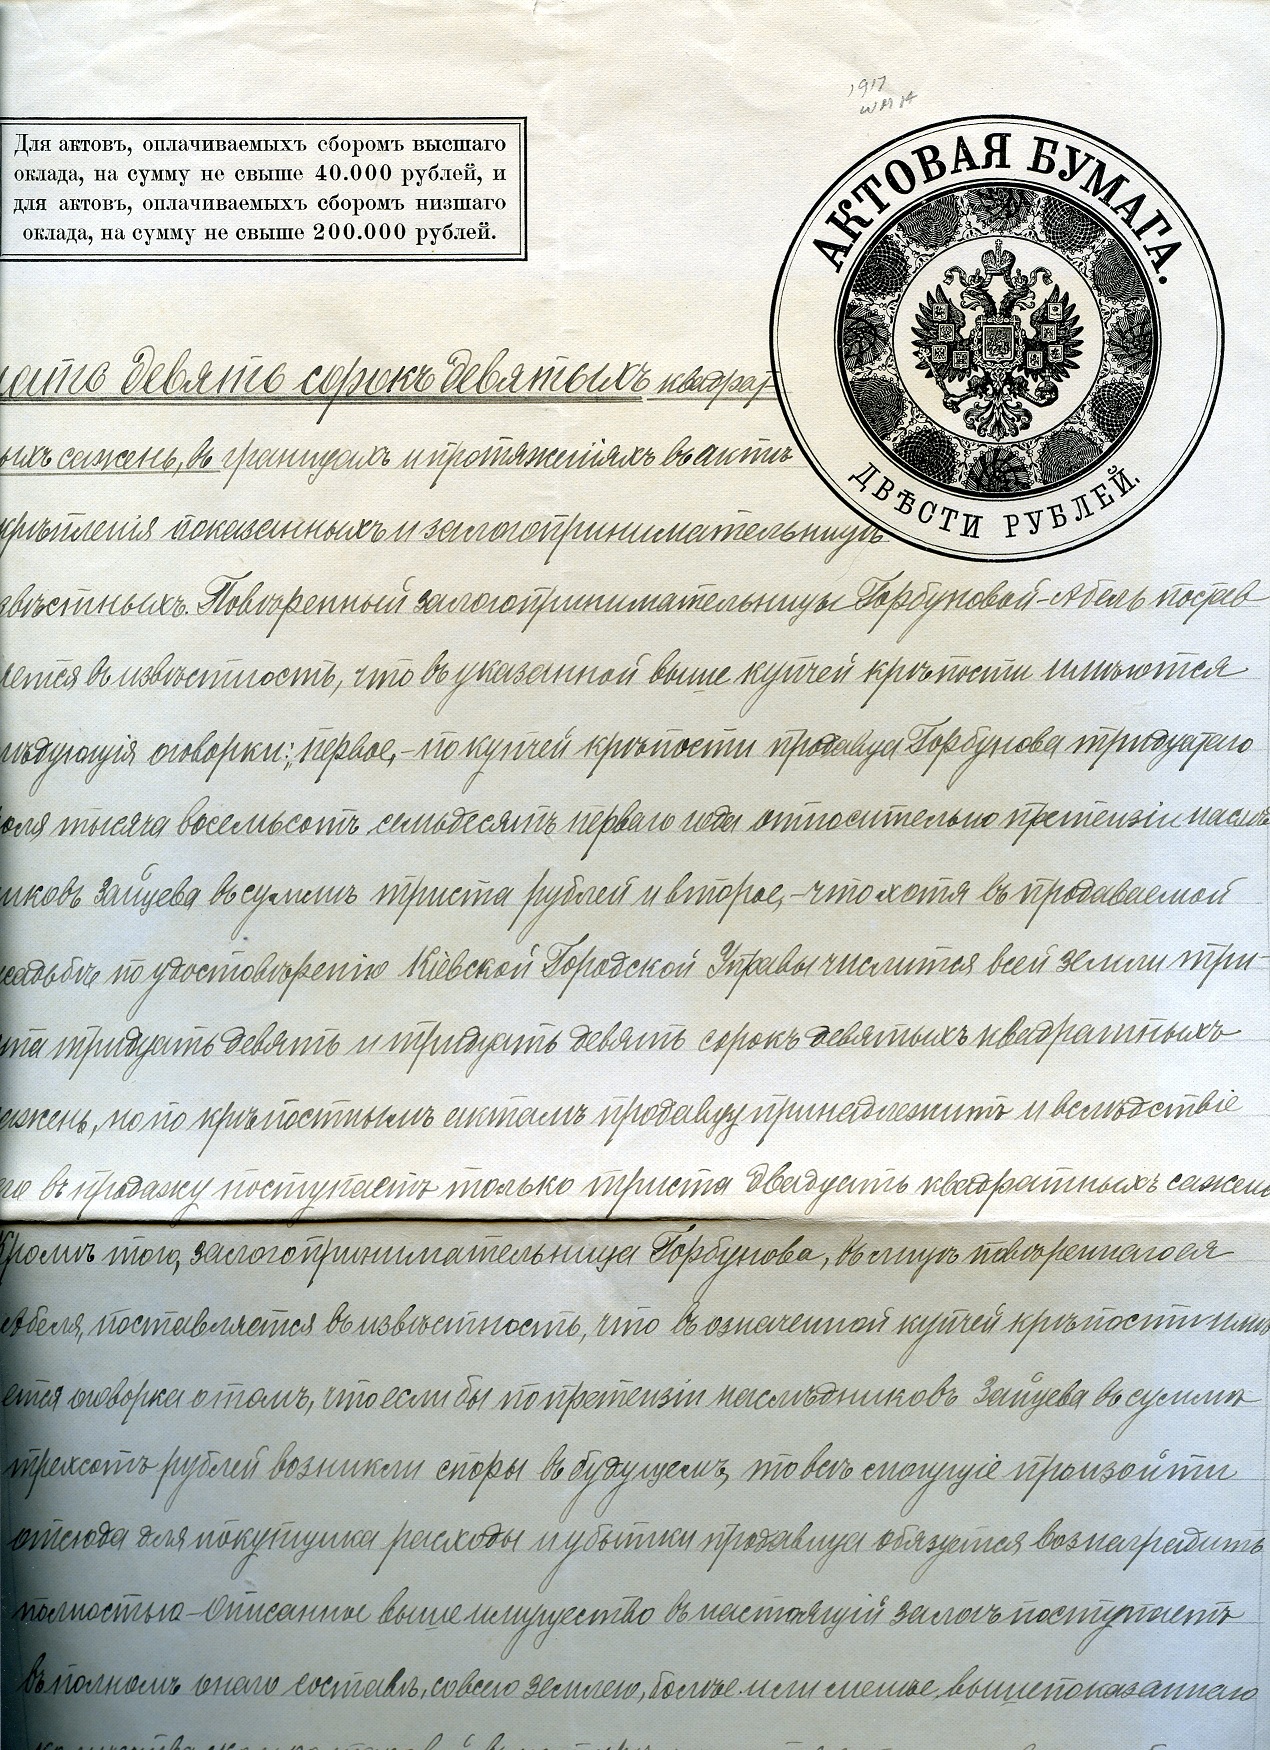 1917
АКТОВАЯ БУМАГА.
ДВѢСТИ РУБЛЕЙ.
Для актовъ, оплачиваемыхъ сборомъ высшаго
оклада, на сумму не свыше 40.000 рублей, и
для актовъ, оплачиваемыхъ сборомъ низшаго
оклада, на сумму не свыше 200.000 рублей.
цать девять сорокъ девятыхъ квадрат
ыхъ сажень, въ границахъ и протяженіяхъ въ актѣ
крѣпленія показанныхъ и залогопринимательницѣ
звѣстныхъ. Повѣренный залогопринимательницы Горбуновой-Абель постав
яется въ извѣстность, что въ указанной выше купчей крѣпости имѣются
лѣдующія оговорки: „первое,- по купчей крѣпости продавца Горбунова тридцатаго
юля тысяча восемьсотъ семьдесятъ перваго года относительно претензіи наслѣд
иковъ Зайцева въ суммѣ триста рублей и второе,- что хотя въ продаваемой
садьбѣ по удостовѣренію Кіевской Городской Управы числится всей земли три-
та тридцать девять и тридцать девять сорокъ девятыхъ квадратныхъ
ажень, но по крѣпостнымъ актамъ продавцу принадлежитъ и вслѣдствіе
его въ продажу поступаетъ только триста двадцать квадратныхъ сажень
Кромѣ того, залогопринимательница Горбунова, въ лицѣ повѣреннаго ея
Абеля, поставляется въ извѣстность, что въ означенной купчей крѣпости имѣ
ется оговорка о томъ, что если бы по претензіи наслѣдниковъ Зайцева въ суммѣ
трехсотъ рублей возникли споры въ будущемъ, то всѣ могущіе произойти
отсюда для покупщика расходы и убытки продавца обязуется вознаградить
полностью- Описанное выше имущество въ настоящій залогъ поступаетъ
въ полномъ онаго составѣ, со всею землею, болѣе или менѣе вышепоказаннаго